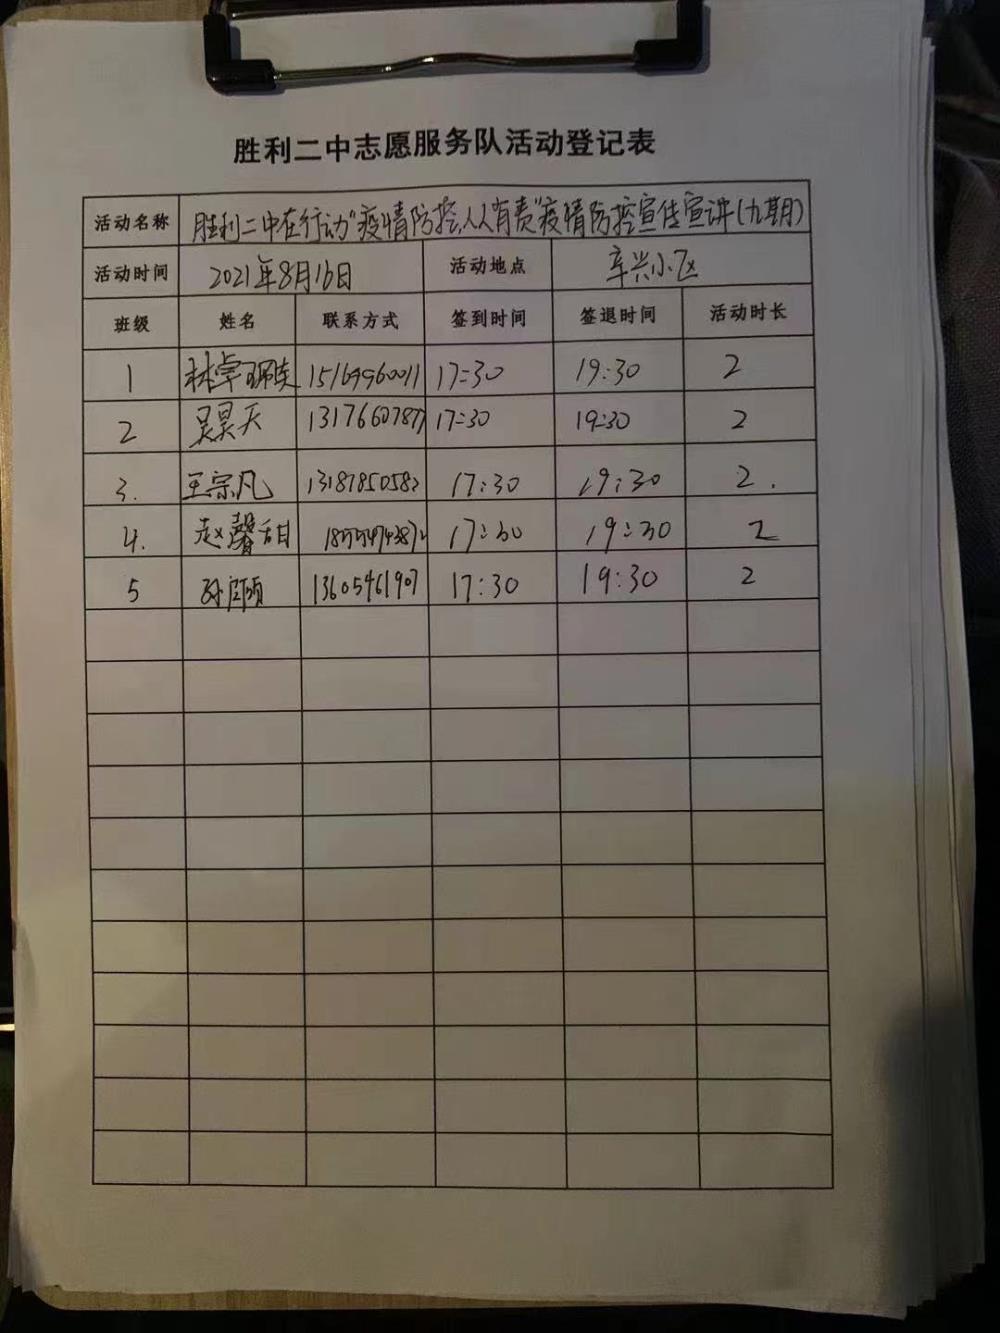 胜利二中志愿服务队活动登记表
活动名称 胜利二中在行动"疫情防控,人人有责"疫情防控宣传宣讲(九期)
活动时间 2021年8月16日 活动地点 辛兴小区
班级 姓名 联系方式 签到时间 签退时间 活动时长
1 林卓 15169960011 17:30 19:30 2
2 吴昊天 1317660787 17:30 19:30 2
3. 王宗凡 1318785058 17:30 19:30 2.
4. 赵馨甜 17:30 19:30 2
5 孙 13605461907 17:30 19:30 2